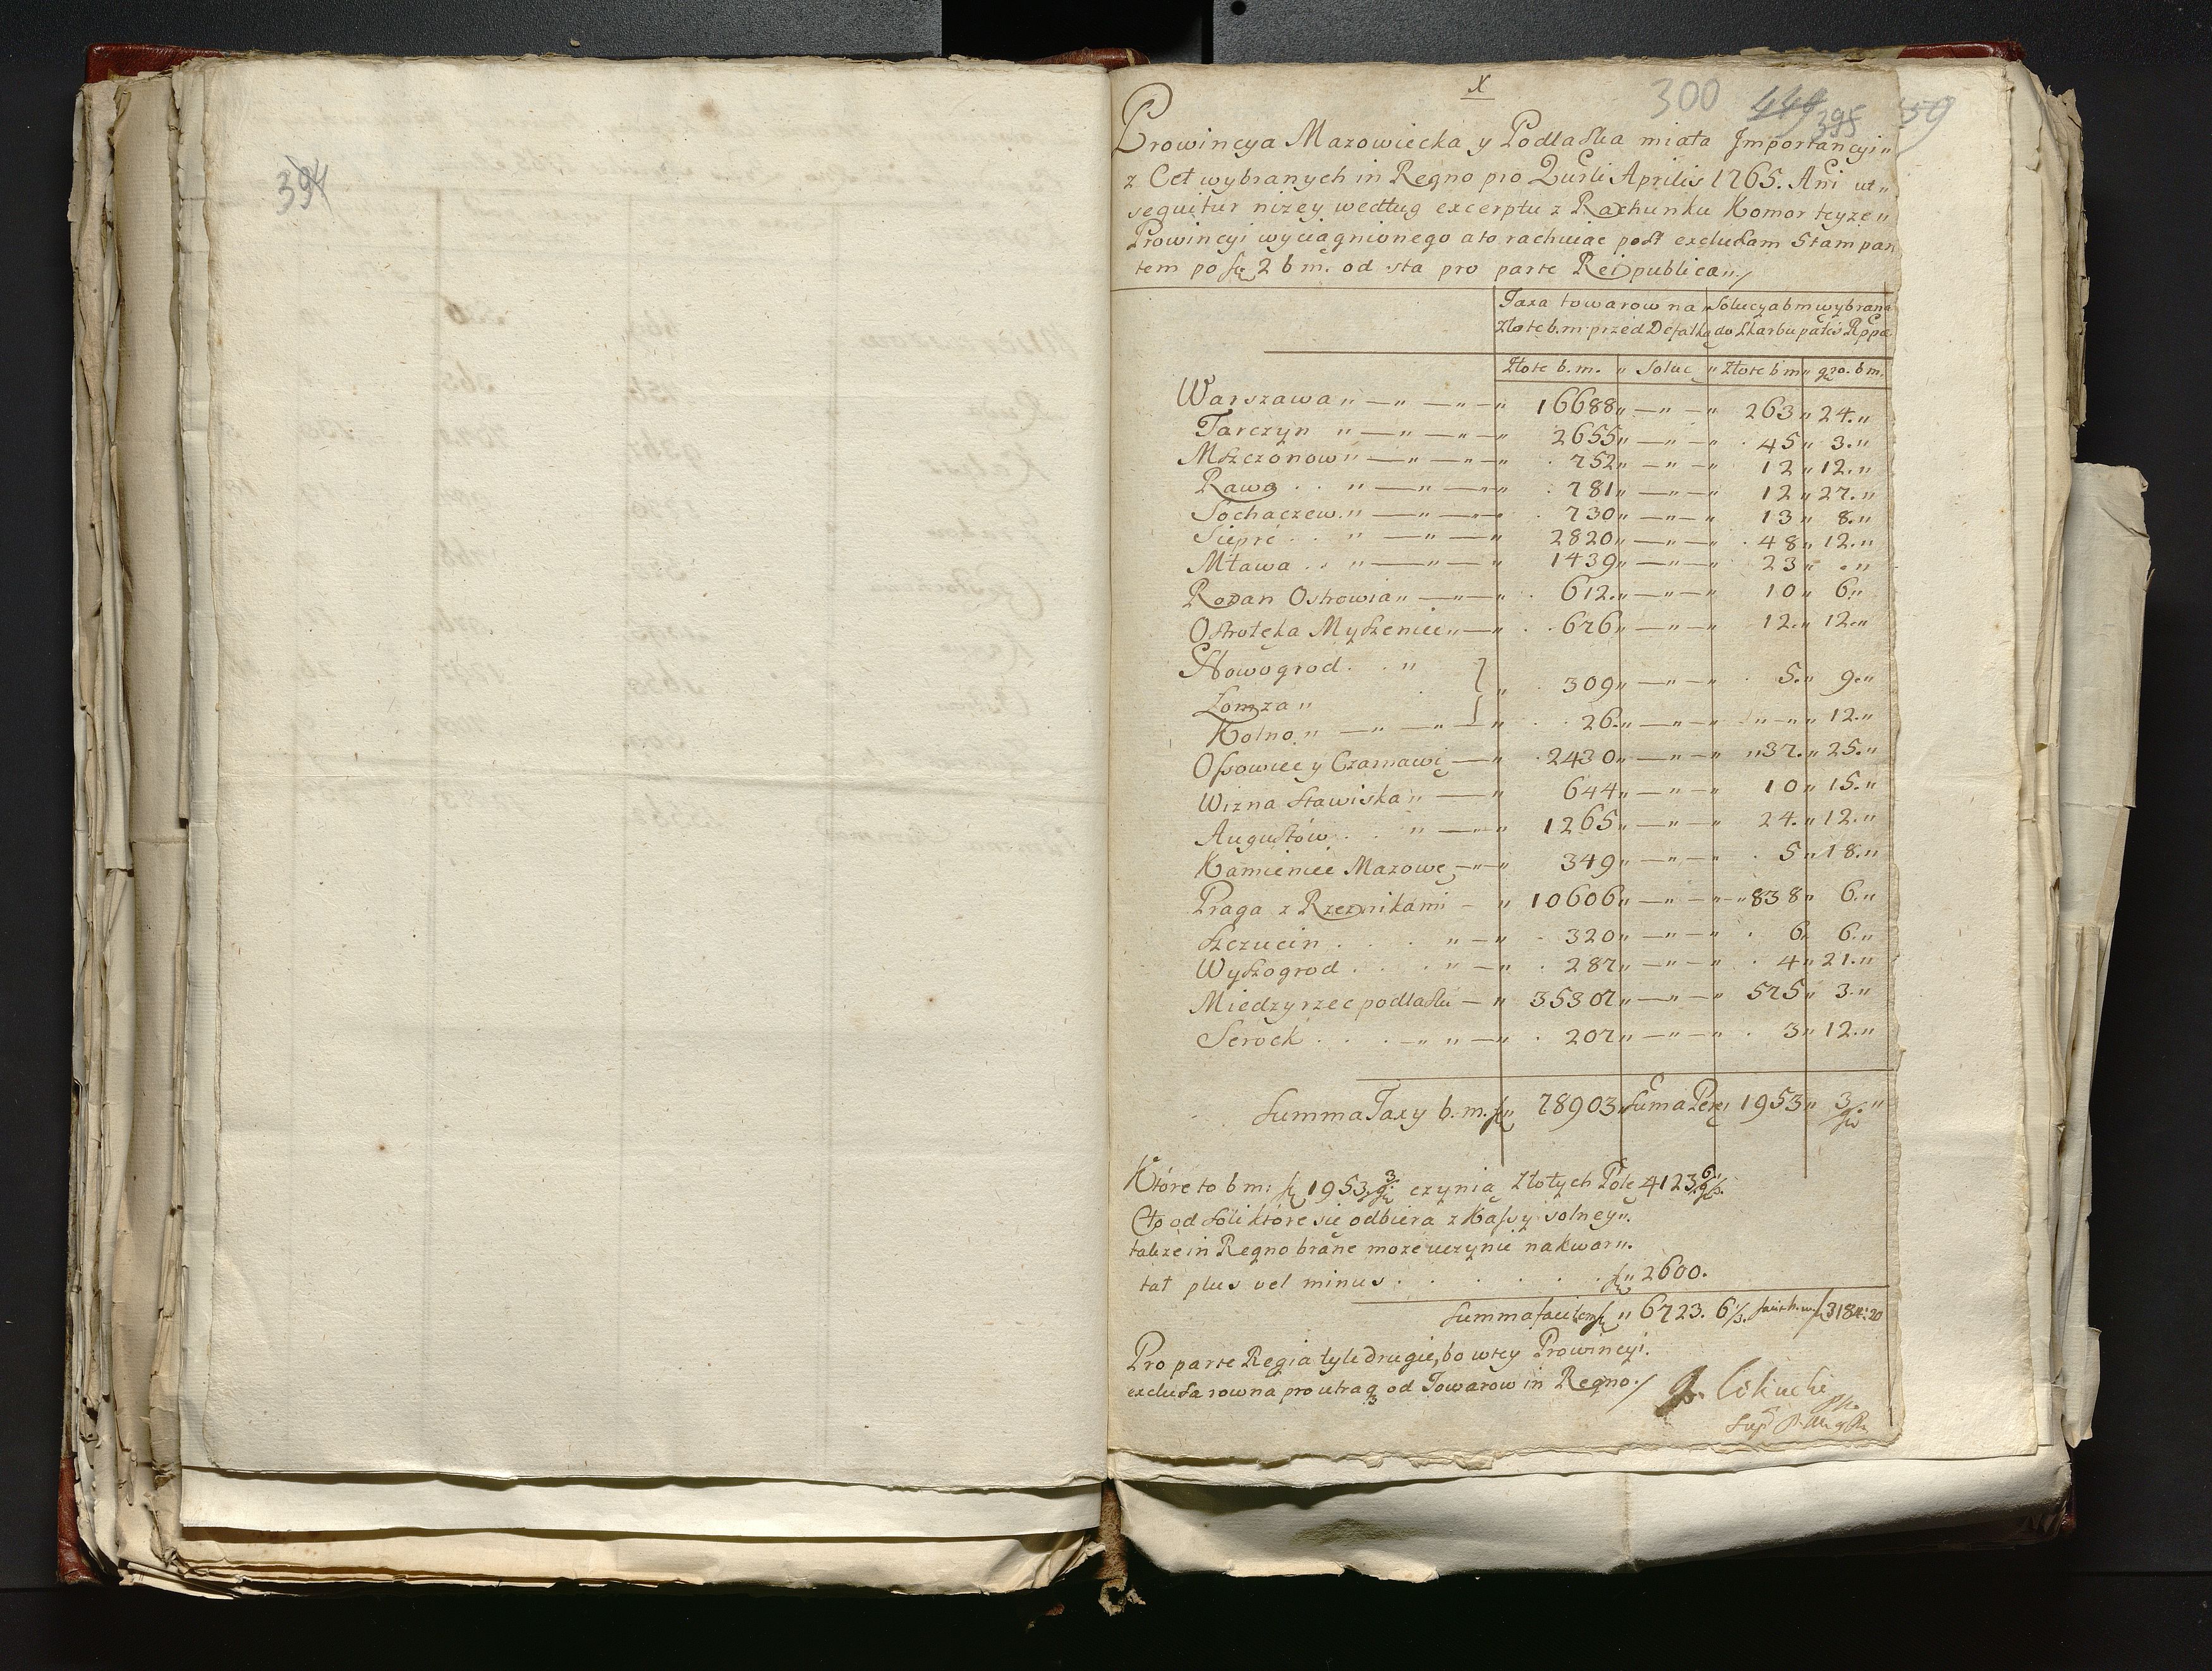 394
X
300 449 395 359
Prowincya Mazowiecka y Podlaska miała Importancyi„
z Ceł wybranych in Regno pro Qurli Aprilis 1765. Ani ut„
sequitur nizey według excerptu z Rachunku Komor teyze„
Prowincyi wyciągnionego a to rachuiąc post exclusam Stampan
tem po 2 b m. od sta pro parte Reipublica„/
Taxa towarow na Solucya b m wybrana
Złote b. m. przed Defalką do Skarbu patis Rppa
Złote b. m. „ Soluc „ Złote b m „ gro. b m.
Warszawa „ — „ — „ — „ 16688 „ — „ — „ 263 „ 24. „
Tarczyn „ — „ — „ — „ 2655 „ — „ — „ 45 „ 3. „
Mszczonow „ — „ — „ — „ 752 „ — „ — „ 12 „ 12. „
Rawa . . „ — „ — „ 781 „ — „ — „ 12 „ 27. „
Sochaczew. „ — „ — „ 730 „ — „ — „ 13 „ 8. „
Siepre . . „ — „ — „ 2820 „ — „ — „ 48 „ 12. „
Mława . . „ — „ — „ 1439 „ — „ — „ 23 „ . „
Rozan Ostrowia „ — „ — „ 612. „ — „ — „ 10 „ 6. „
Ostrołęka Myszeniec „ — „ 676 „ — „ — „ 12. „ 12. „
Nowogrod . . „ } 309 „ — „ — „ 5. „ 9. „
Łomza „
Kolno „ — „ — „ — „ 26. „ — „ — „ „ — „ 12. „
Ossowiec y Czarnawi — „ 2430 „ — „ — „ „ 37. „ 25. „
Wizna Stawiska „ — „ 644 „ — „ — „ 10 „ 15. „
Augustów . . „ — „ 1265 „ — „ — „ 24. „ 12. „
Kamieniec Mazowe — „ 349 „ — „ — „ 5 „ 18. „
Praga z Rzeznikami — „ 10606 „ — „ — „ 838 „ 6. „
Szczucin . . . „ — „ 320 „ — „ — „ 6. 6. „
Wyszogrod . . . „ — „ 287 „ — „ — „ 4 „ 21. „
Miedzyrzec podlaski — „ 35307 „ — „ — „ 575 „ 3. „
Serock . . . — „ „ — „ 207 „ — „ — „ 3 „ 12. „
Summa Taxy b. m. „ 78903 „ Suma Per 1953 „ 3 „
Które to b m: 1953. 3 czynią Złotych Pols 4123. 6
Cło od Soli które się odbiera z Kassy solney „.
także in Regno brane moze uczynic na kwar „.
tał plus vel minus . . . . . . „ 2600.
Summa facit „ 6723. 6 1/3. facit b. m. 3184: 20
Pro parte Regia tyle drugie, bo w tey Prowincyi.
exclusa rowna pro utraq od Towarow in Regno./